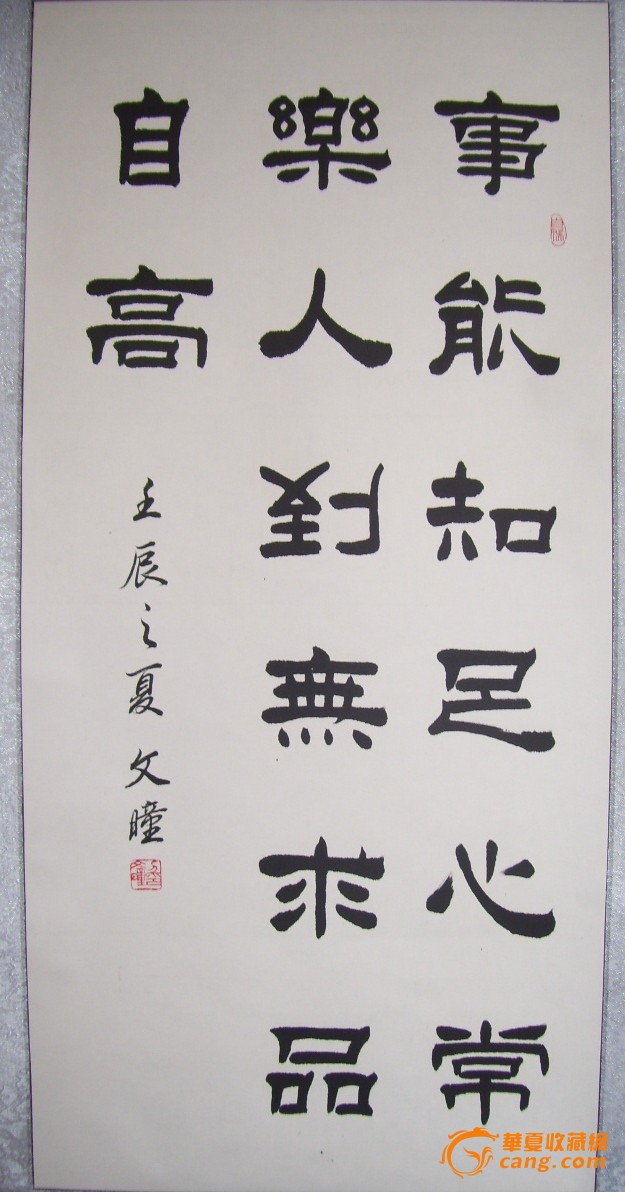 事能知足心常
樂人到無求品
自高
壬辰之夏 文瞳
華夏收藏網
cang.com